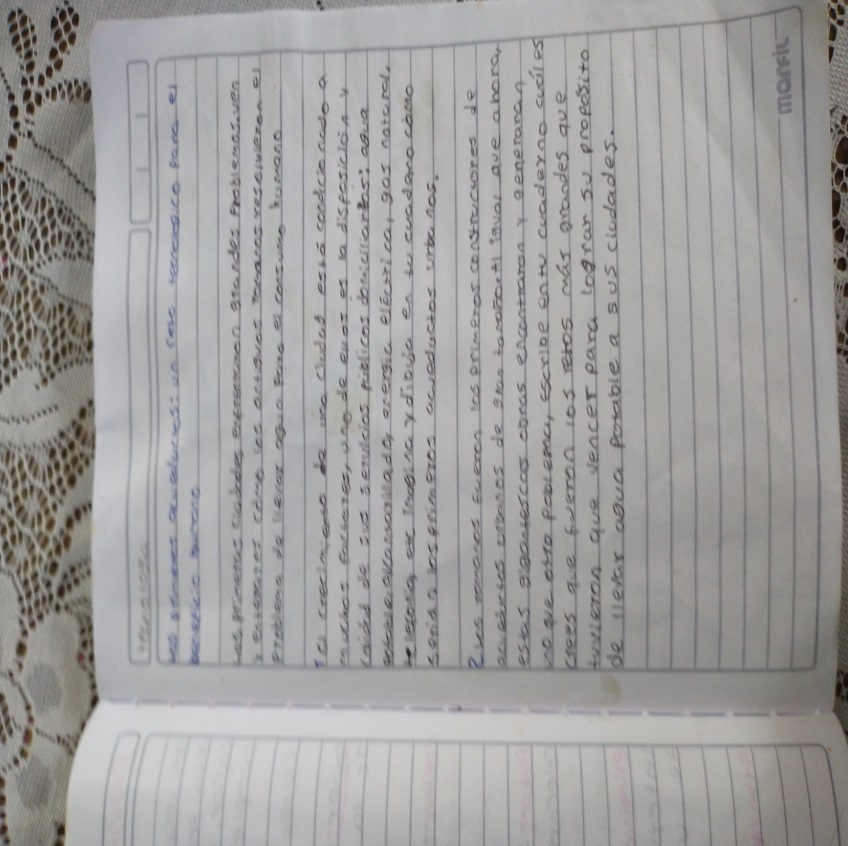 Tecnología
Los primeros acueductos: un reto tecnológico para el
beneficio humano
Las primeras ciudades enfrentaron grandes problemas. ven
y enterartes cómo los antiguos romanos resolvieron el
problema de llevar agua para el consumo humano
1 el crecimiento de una ciudad está condicionado a
muchos factores, uno de ellos es la disposición y
calidad de sus servicios públicos domiciliarios: agua
potable, alcantarillado, energía eléctrica, gas natural,
telefonía, etc imagina y dibuja en tu cuaderno cómo
serían los primeros acueductos urbanos.
2 Los romanos fueron los primeros constructores de
acueductos urbanos de gran tamaño. Al igual que ahora,
estas gigantescas obras encontraron y generaran
uno que otro problema, escribe en tu cuaderno cuáles
crees que fueron los retos más grandes que
tuvieron que vencer para lograr su proposito
de llevar agua potable a sus ciudades.
marfil